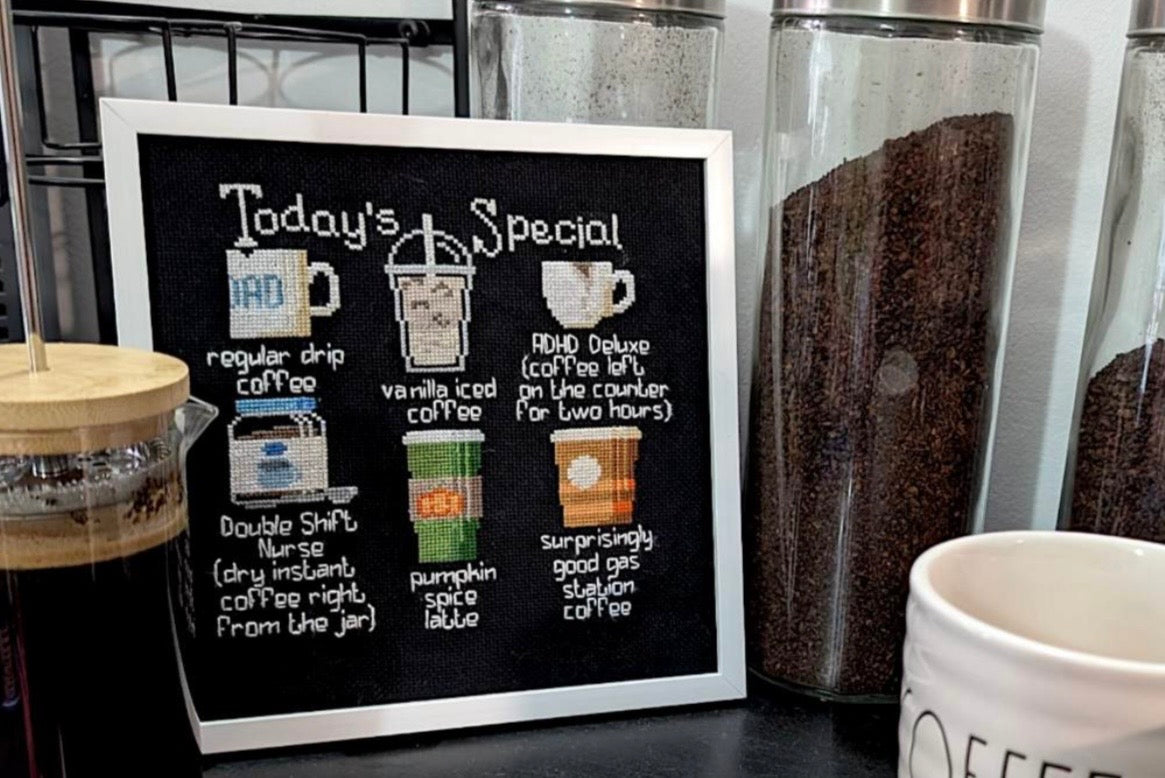 Today's Special
DAD
regular drip
coffee
vanilla iced
coffee
ADHD Deluxe
(coffee left
on the counter
for two hours)
Double Shift
Nurse
(dry instant
coffee right
from the jar)
pumpkin
spice
latte
surprisingly
good gas
station
coffee
OFFEE